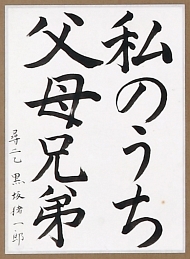 私のうち
父母兄弟
尋二乙 黒坂清一郎